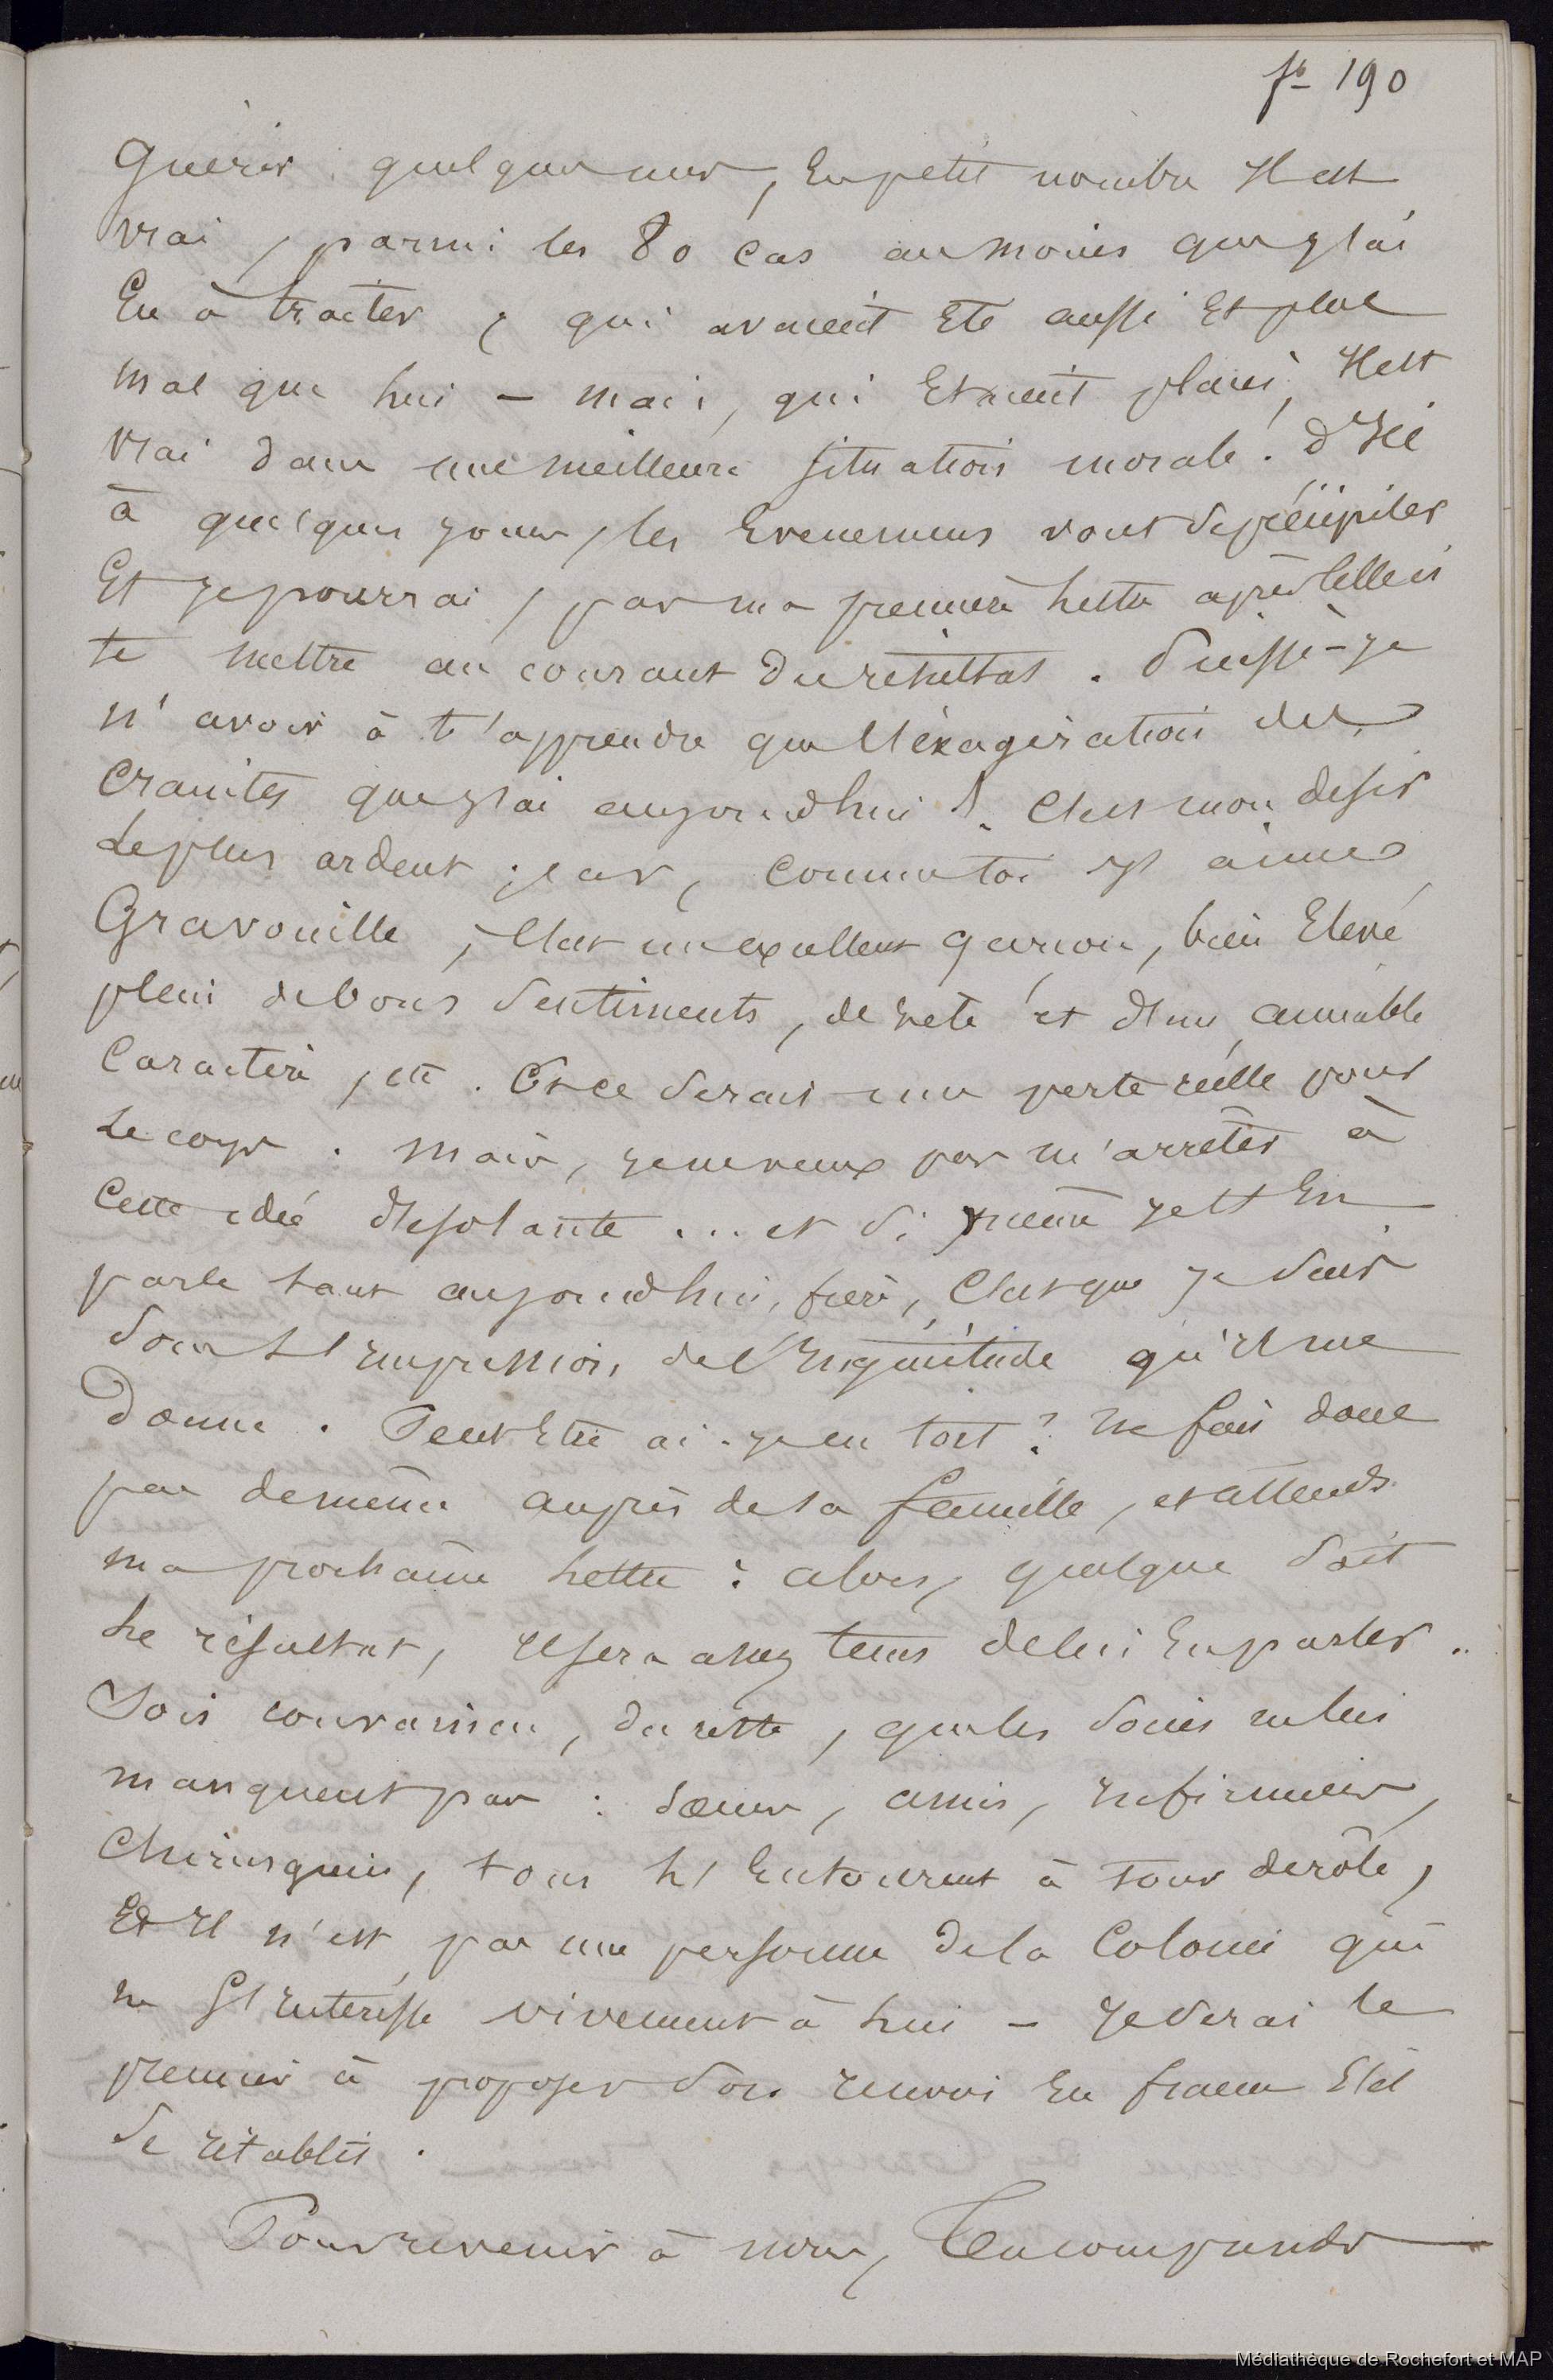 fo 190
Guérir quelques uns, En petit nombre Il est
vrai, parmi les 80 cas au moins que j'ai
Eu à traiter, & qui avaient Eté aussi Et plus
mal que lui — mais, qui Etaient placés, Il est
vrai dans une meilleure situation morale. D'Ici
à quelques jours, les Evenemens vont se précipiter
Et je pourrai, par ma première lettre après celle ci
te mettre au courant du résultat. Puissé-je
n'avoir à t'apprendre que l'éxagération des
craintes que j'ai aujourdhui! C'est mon desir
le plus ardent; car, comme toi j'aime
Gravouille; C'est un excellent garçon, bien Elevé
plein de bons sentiments, de et d'un aimable
Caractère, etc. Et ce serait une perte réelle pour
le corps. Mais, je ne veux pas m'arrêter à
Cette idée désolante ... et si même je t'En
parle tant aujourdhui, frère, C'est que je suis
sous l'Impression de l'Inquiétude qu'il me
Donne. Peut Etre ai-je eu tort? Ne fais donc
pas de même auprès de sa famille, et attends
ma prochaine lettre: alors, quelque soit
le résultat, Il sera assez tems de lui En parler..
Sois convaincu, du reste, que les soins ne lui
manquent pas: sœurs, amis, Infirmiers,
Chirurgiens, tous l'Entourent à tour de rôle,
Et Il n'est pas une personne de la Colonie qui
ne s'Intéresse vivement à lui — Je serai le
premier à proposer son renvoi En france s'Il
se rétablit.
Pour revenir à nous, Tu comprends
Médiathèque de Rochefort et MAP